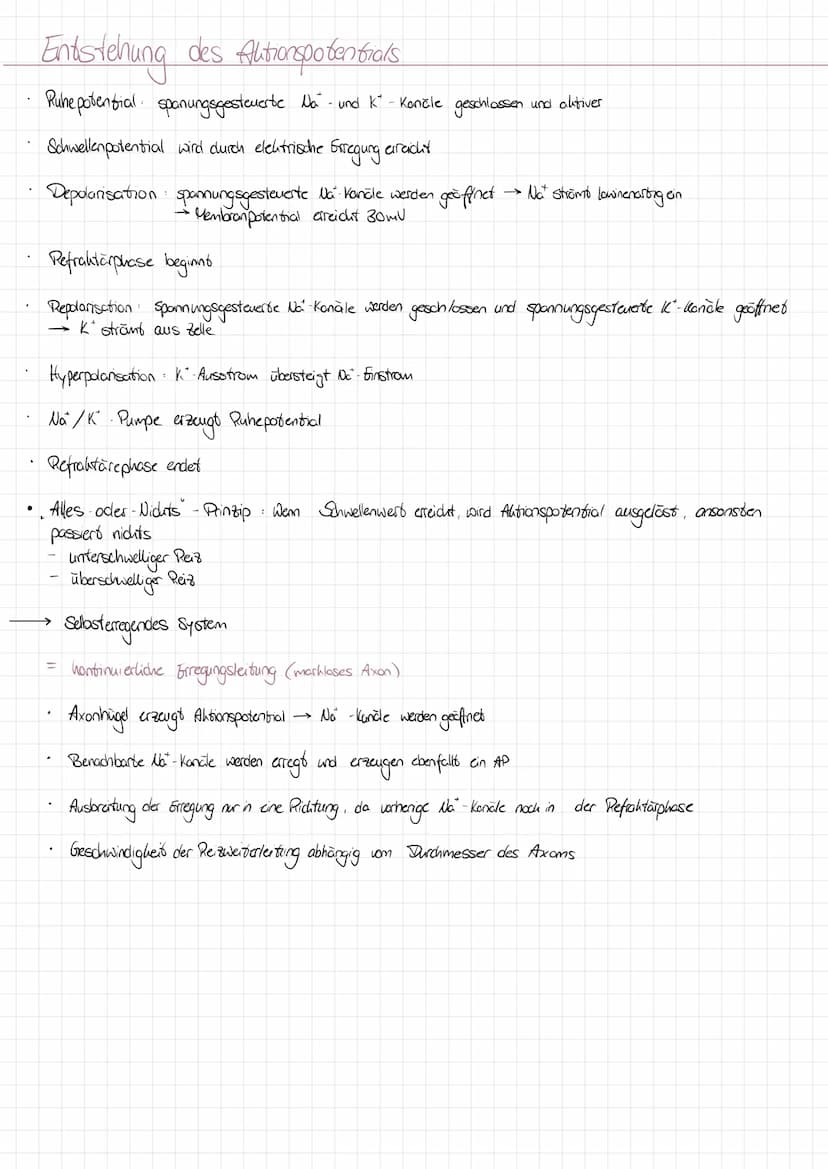 Entstehung des Aktionspotentials
· Ruhepotential: spanungsgesteuerte Na⁺- und K⁺-Kanäle geschlossen und aktiver
· Schwellenpotential wird durch elektrische Erregung erreicht
· Depolarisation: spannungsgesteuerte Na⁺-Kanäle werden geöffnet → Na⁺ strömt lawinenartig ein
→ Membranpotential erreicht 30mV
· Refraktärphase beginnt
· Repolarisation: Spannungsgesteuerte Na⁺-Kanäle werden geschlossen und spannungsgesteuerte K⁺-Kanäle geöffnet
→ K⁺ strömt aus Zelle
· Hyperpolarisation: K⁺-Ausstrom übersteigt Na⁺-Einstrom
· Na⁺/K⁺-Pumpe erzeugt Ruhepotential
· Refraktärephase endet
• „Alles-oder-Nichts"-Prinzip: Wenn Schwellenwert erreicht, wird Aktionspotential ausgelöst, ansonsten
passiert nichts
- unterschwelliger Reiz
- überschwelliger Reiz
→ Selbsterregendes System
= kontinuierliche Erregungsleitung (markloses Axon)
· Axonhügel erzeugt Aktionspotential → Na⁺-Kanäle werden geöffnet
· Benachbarte Na⁺-Kanäle werden erregt und erzeugen ebenfallt ein AP
· Ausbreitung der Erregung nur in eine Richtung, da vorherige Na⁺-Kanäle noch in der Refraktärphase
· Geschwindigkeit der Reizweiterleitung abhängig vom Durchmesser des Axoms